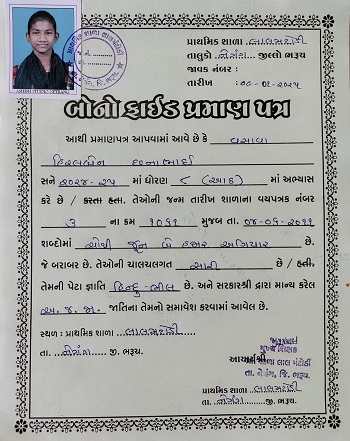 ASHISH STUDIO NETRANG
પ્રાથમિક શાળા લાલમંટોડી
તાલુકો નેત્રંગ જીલ્લો ભરૂચ
જાવક નંબર :
તારીખ
બોનોફાઈડ પ્રમાણ પત્ર
આથી પ્રમાણપત્ર આપવામાં આવે છે કે વસાવા
છનાભાઈ
સને ૨૦૨૪-૨૫ માં ધોરણ ૮ (આઠ) માં અભ્યાસ
કરે છે / કરતા હતા. તેઓની જન્મ તારીખ શાળાના વયપત્રક નંબર
૩ ના ક્રમ ૧૦૬૧ મુજબ તા. ૦૪-૦૬-૨૦૧૧
શબ્દોમાં ચોથી જૂન બે હજાર અગિયાર છે.
જે બરાબર છે. તેઓની ચાલચલગત સારી છે / હતી.
તેમની પેટા જ્ઞાતિ હિન્દુ-ભીલ છે. અને સરકારશ્રી દ્વારા માન્ય કરેલ
અ. જ. જા. જાતિના તેમનો સમાવેશ કરવામાં આવેલ છે.
સ્થળ : પ્રાથમિક શાળા લાલમંટોડી
તા. નેત્રંગ જી. ભરૂચ.
આચાર્યશ્રી
મુખ્ય શિક્ષક
લાલ મંટોડી
તા. નેત્રંગ, જિ. ભરૂચ.
પ્રાથમિક શાળા લાલમંટોડી
તા. નેત્રંગ જી. ભરૂચ